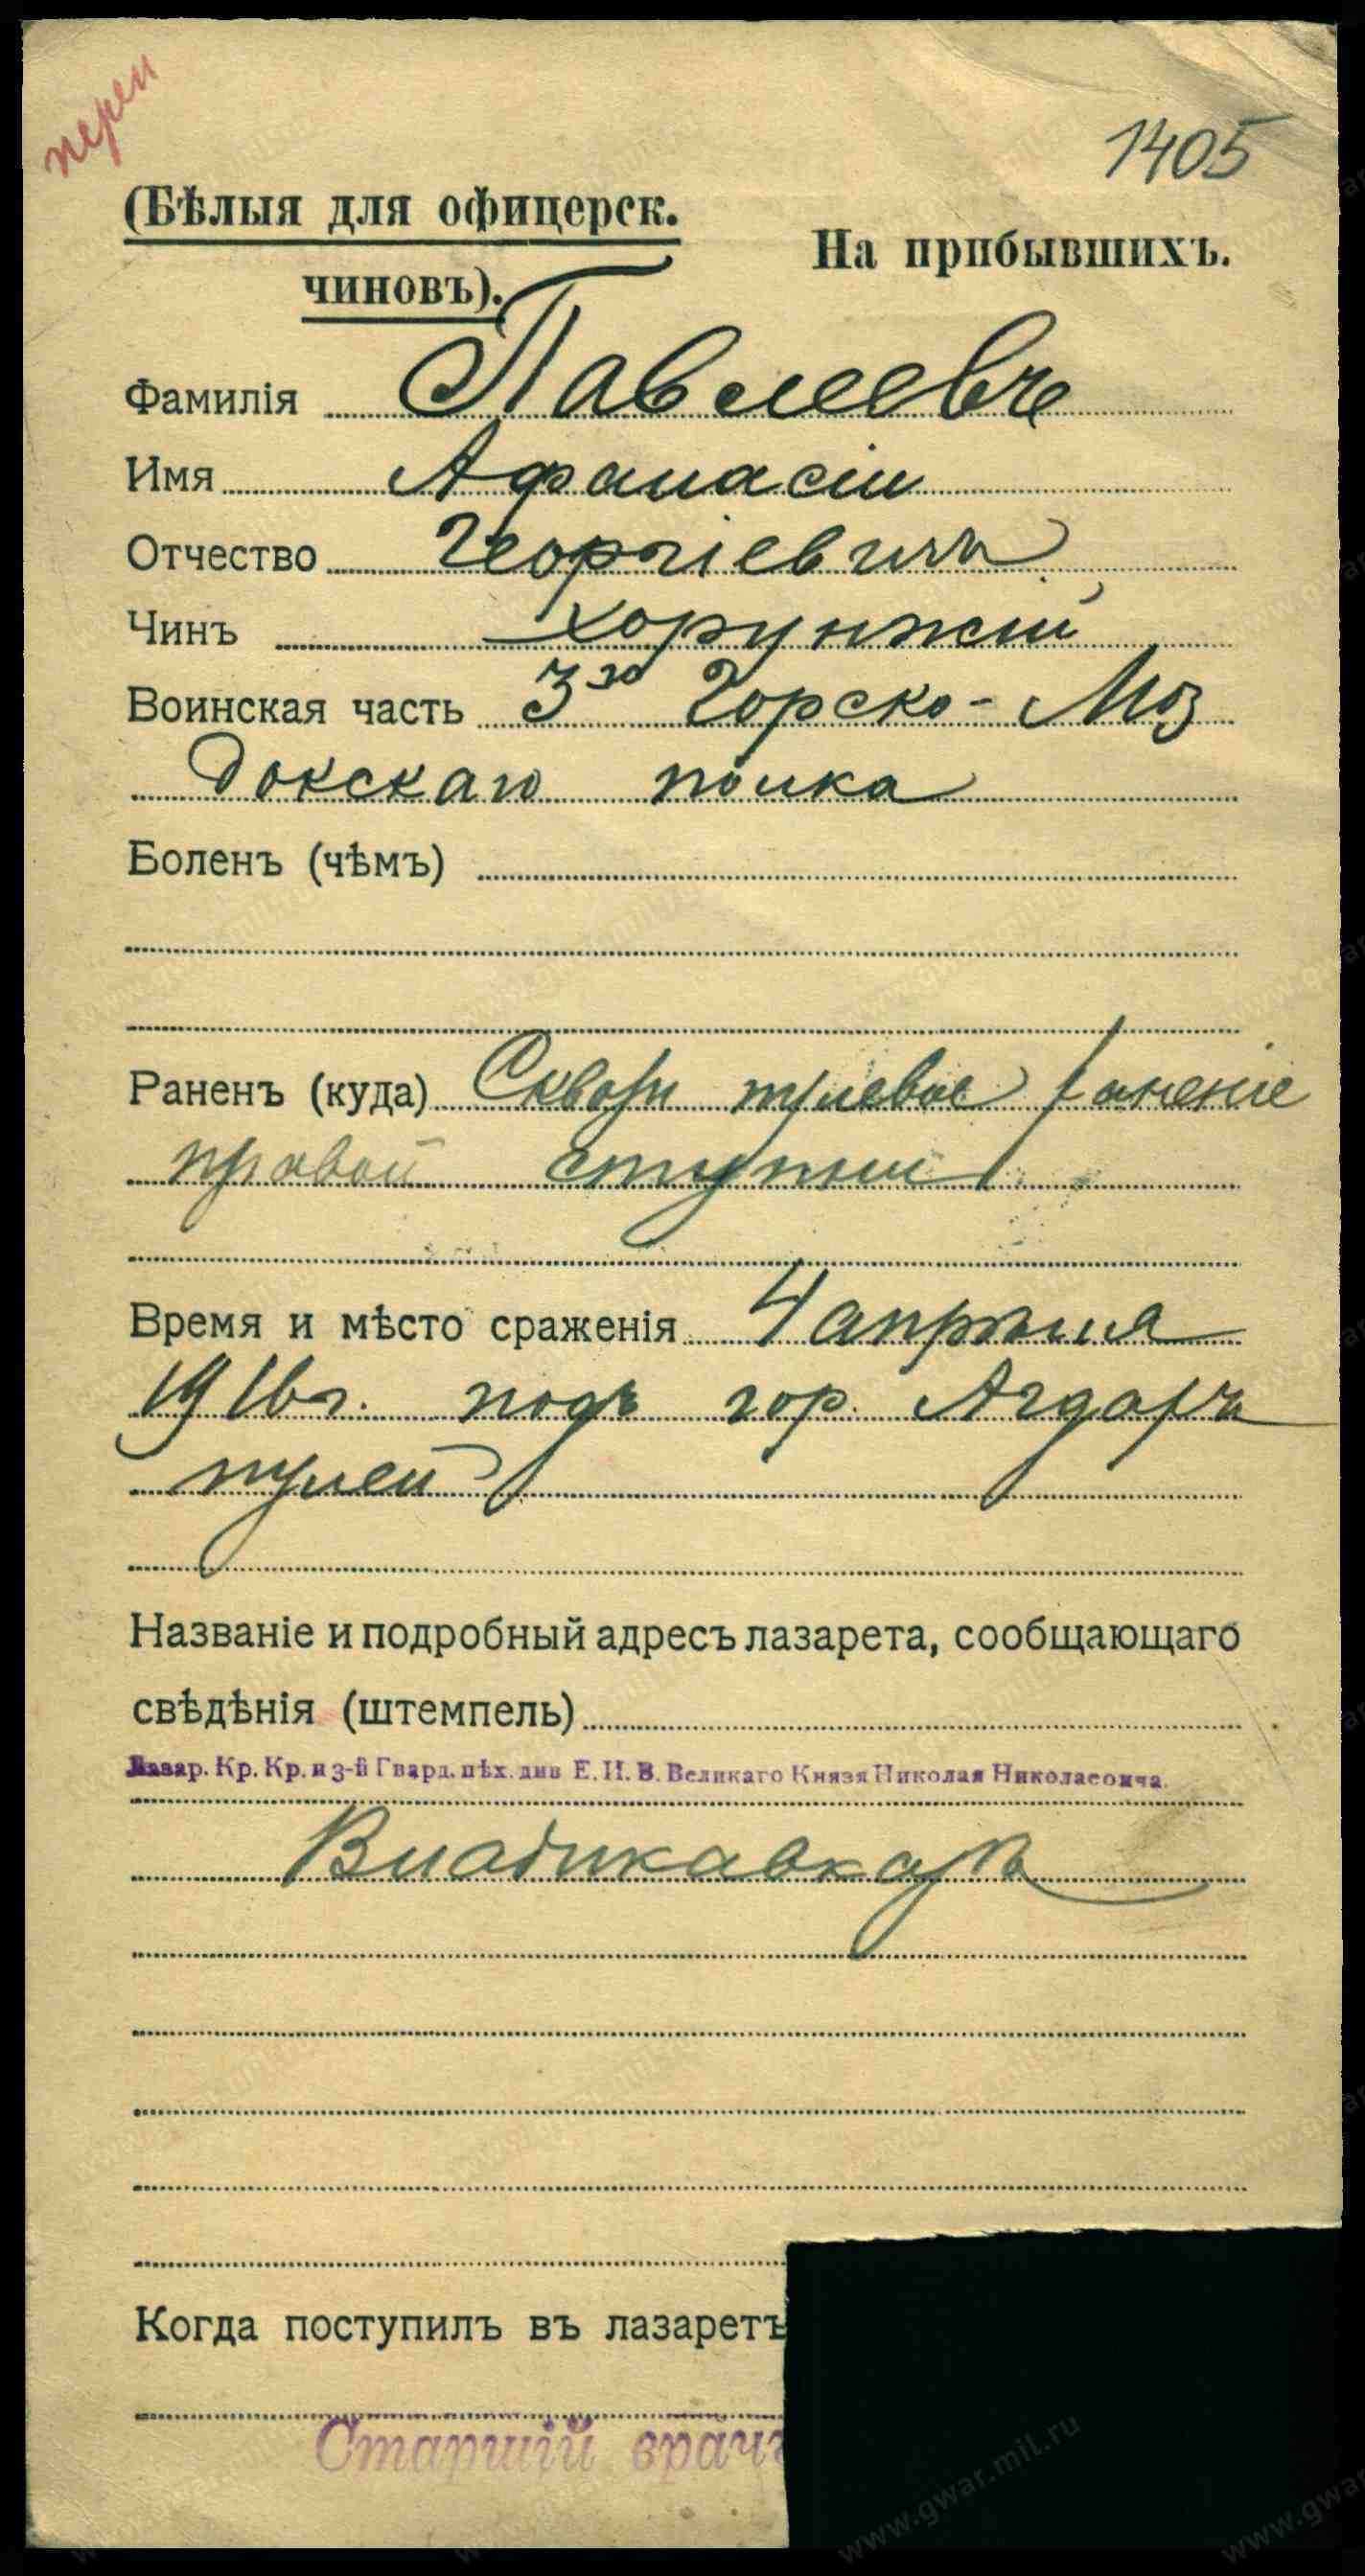 перем
1405
(Бѣлыя для офицерск.
чиновъ).
На прибывшихъ.
Фамилія Павлеевъ
Имя Афанасій
Отчество Георгіевичъ
Чинъ хорунжій
Воинская часть 3го Горско-Моз
докскаго полка
Боленъ (чѣмъ)
Раненъ (куда) Сквозн пулевое ранение
правой ступни
Время и мѣсто сраженія 4 апрѣля
1916г. подъ гор. Агдазъ
пулей
Названіе и подробный адресъ лазарета, сообщающаго
свѣдѣнія (штемпель)
Лазар. Кр. Кр. и 3-й Гвард. пѣх. див Е. И. В. Великаго Князя Николая Николаевича.
Владикавказъ
Когда поступилъ въ лазаретъ
Старшій врачъ
www.gwar.mil.ru